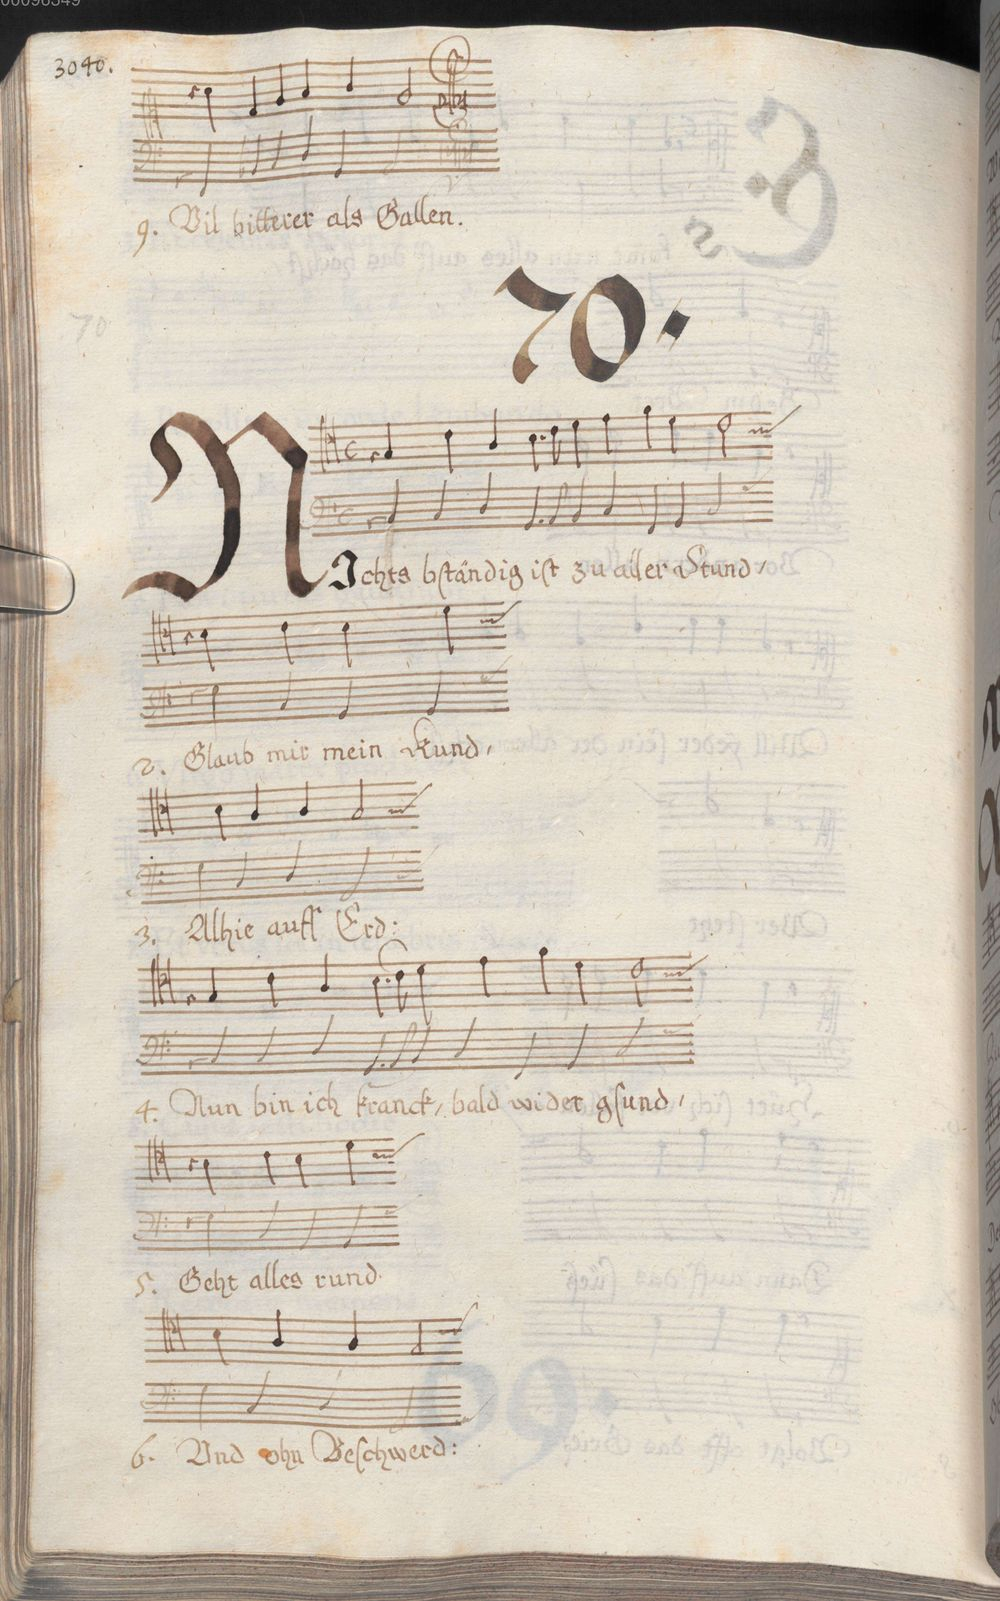 3040.
9. Vil bitterer als Gallen.
70.
70
NIchts bständig ist zu aller Stund,
2. Glaub mir mein Kund,
3. Alhie auff Erd:
4. Nun bin ich kranck, bald wider gsund,
5. Geht alles rund.
6. Vnd ohn Beschwerd: